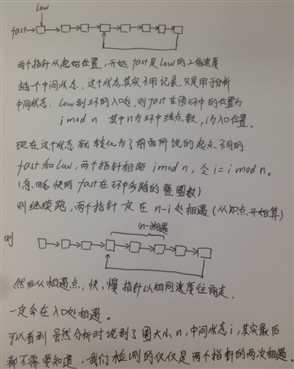 low
fast
两个指针从起始位置,开始,fast是low的二倍速度
给一个中间状态,这个状态其实不用记录,只是用于分析
中间状态:low到环的入口处,则fast在循环中的位置为
i mod n. 其中n为环中结点数,i为入口位置.
现在这个状态就转化为了前面所说的起点不同的
fast和low,两个指针相距 i mod n,令 i = i mod n.
(忽略快的fast在环中多跑的整圈数)
则继续跑,两个指针一定在 n-i 处相遇(从环点开始算)
n-i相遇
则
然后从相遇点,快、慢指针以相同速度往前走.
一定会在入口处相遇.
可以看到虽然分析时说到了圈大小n,中间状态i,其实最后
都不需要知道,我们检测的仅仅是两个指针的两次相遇.